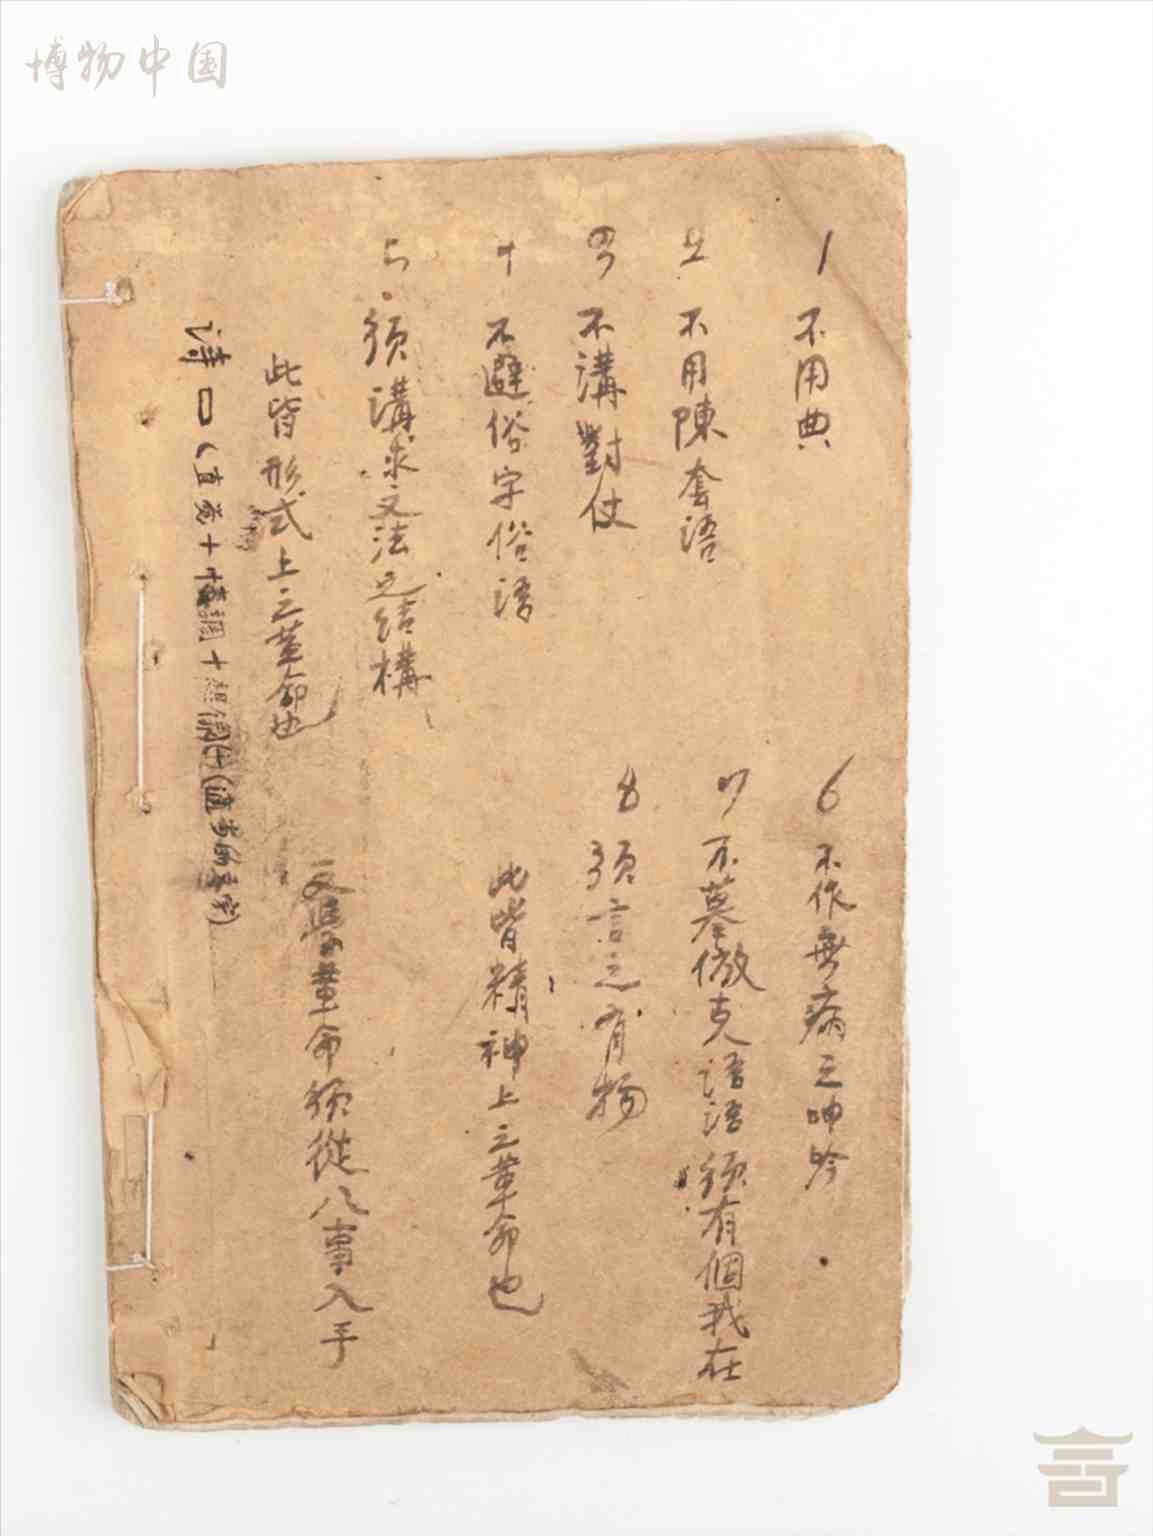 博物中国
1 不用典
2 不用陳套語
3 不講對仗
4 不避俗字俗語
5 須講求文法之結構
此皆形式上之革命也
6 不作無病之呻吟
7 不摹倣克語語須有個我在
8 須言之有物
此皆精神上之革命也
文學革命須從八事入手
诗口(直覚+情調+想像)